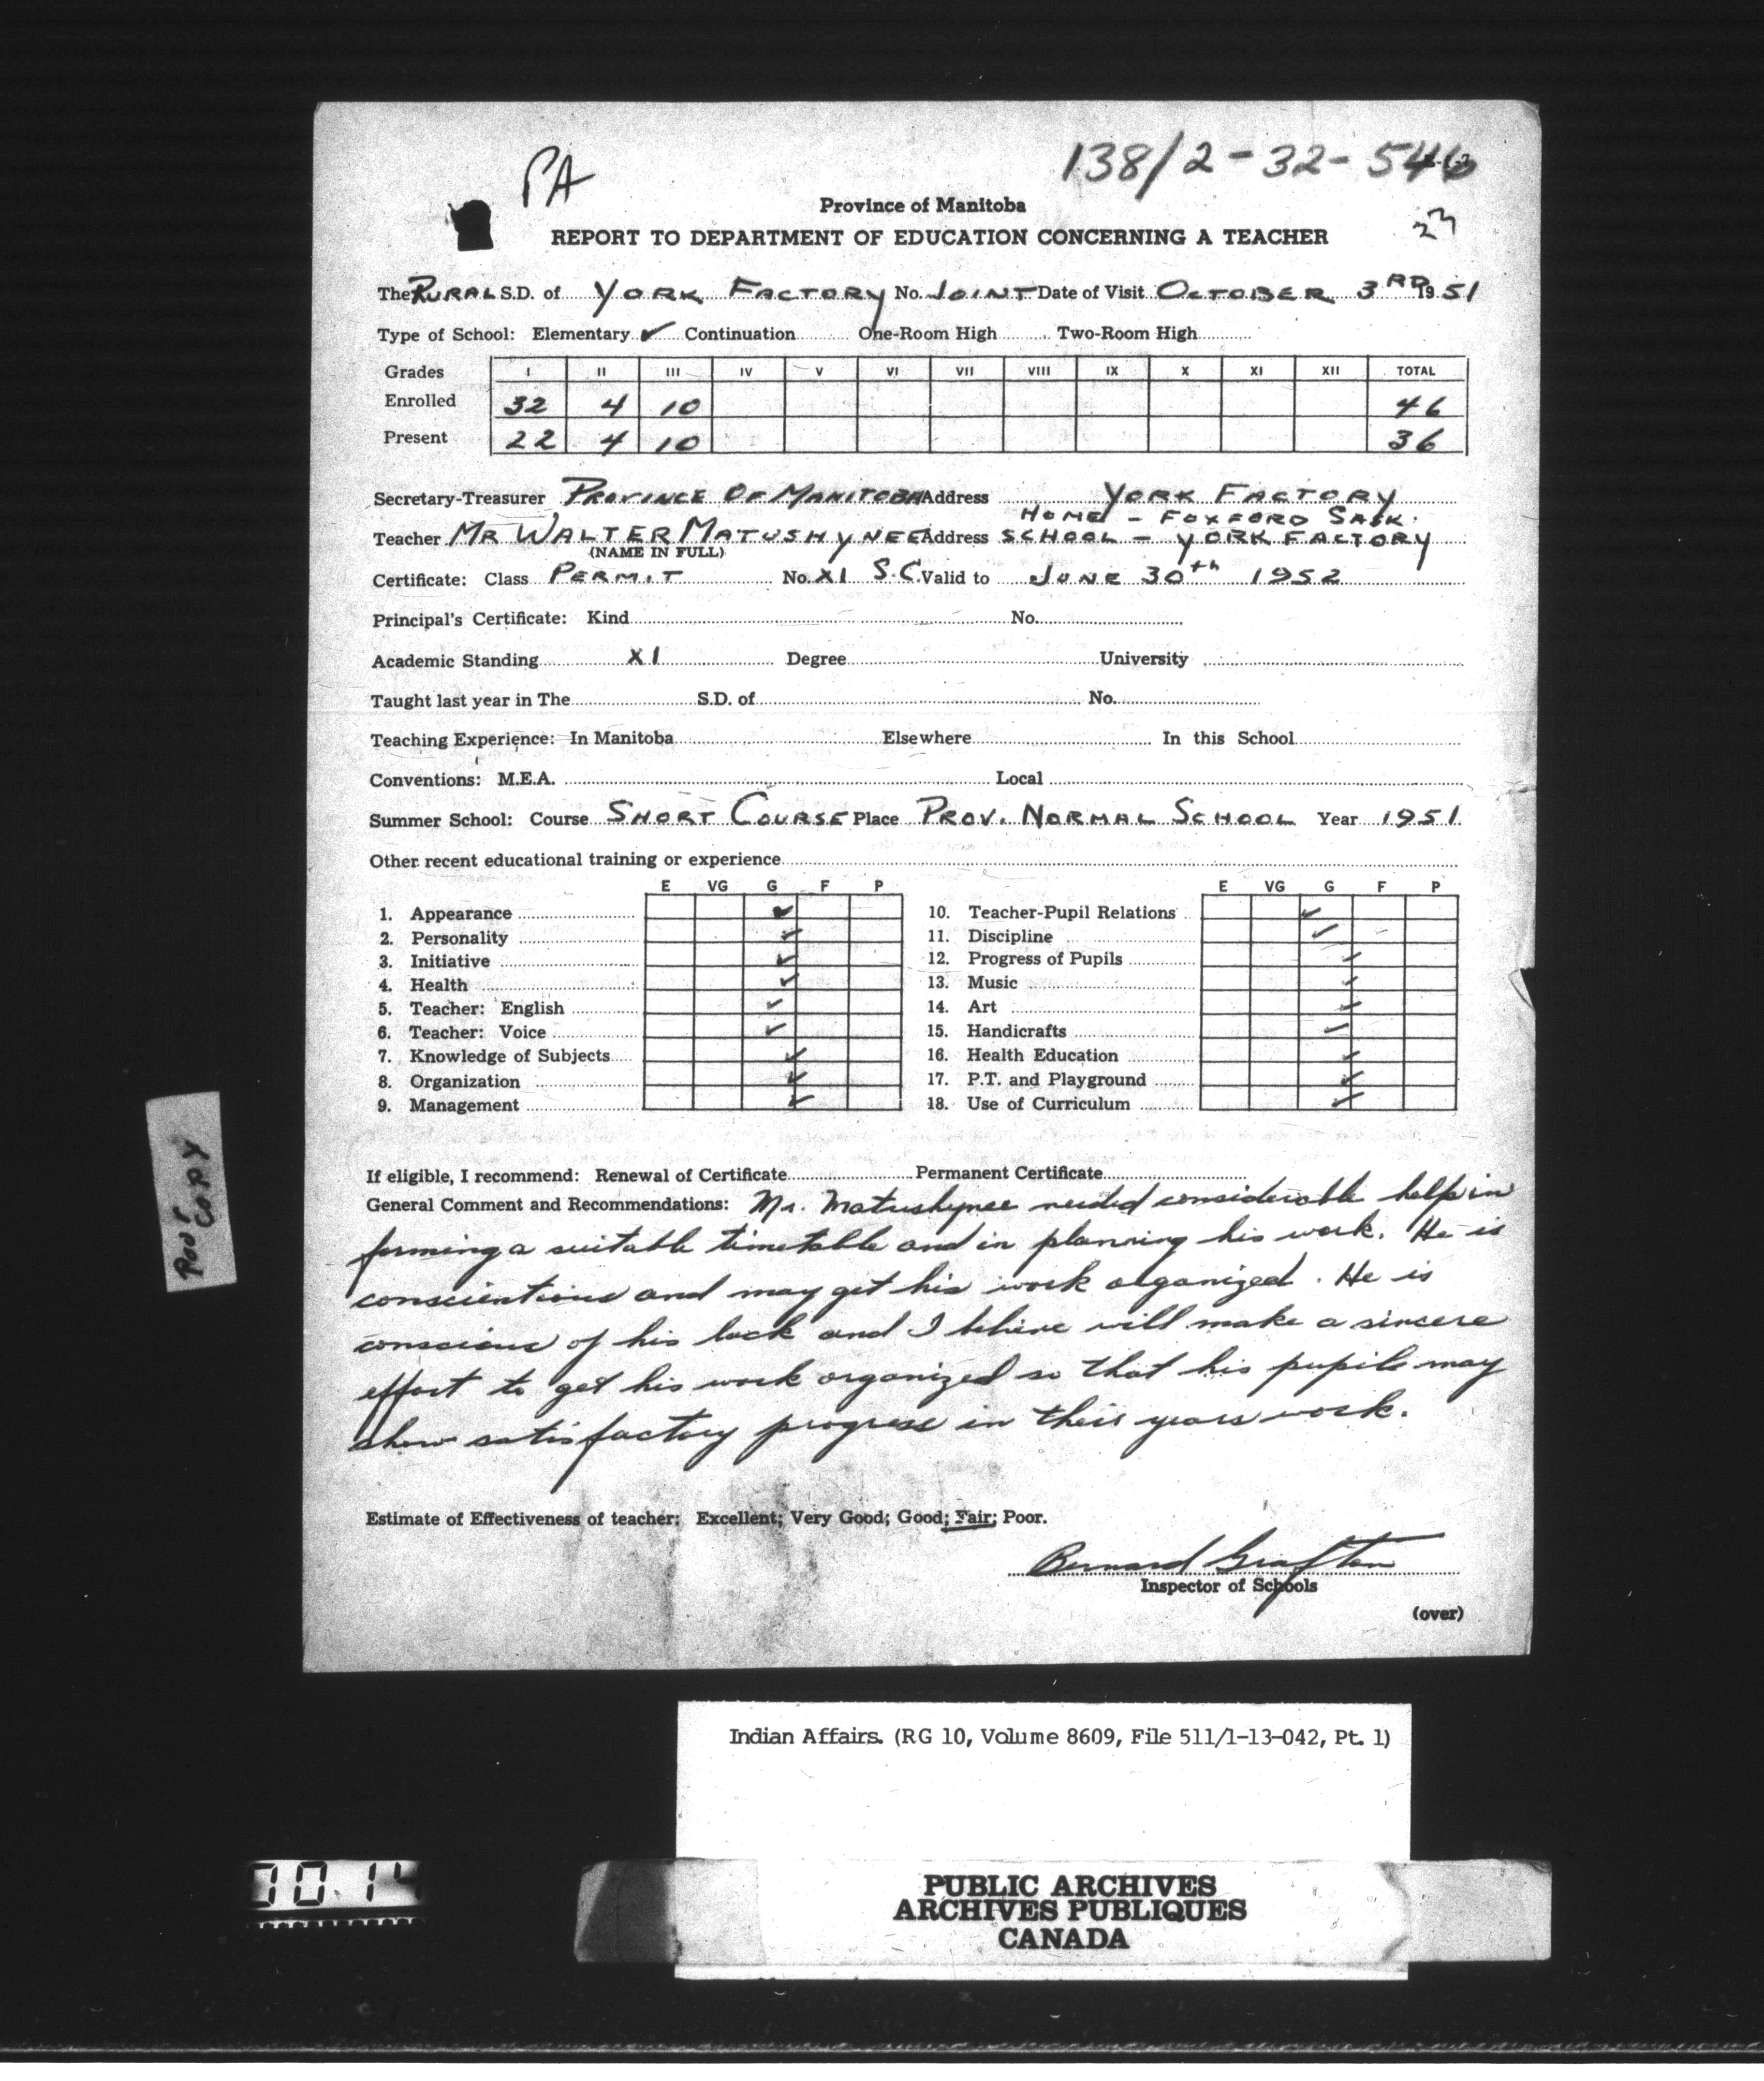 PA
138/2-32-546
23
Province of Manitoba
REPORT TO DEPARTMENT OF EDUCATION CONCERNING A TEACHER
The RURAL S.D. of YORK FACTORY No. JOINT Date of Visit OCTOBER 3RD 1951
Type of School: Elementary ✓ Continuation One-Room High Two-Room High
Grades I II III IV V VI VII VIII IX X XI XII TOTAL
Enrolled 32 4 10 46
Present 22 4 10 36
Secretary-Treasurer PROVINCE OF MANITOBA Address YORK FACTORY
HOME - FOXFORD SASK.
Teacher MR WALTER MATUSHYNEE Address SCHOOL - YORK FACTORY
(NAME IN FULL)
Certificate: Class PERMIT No. XI S.C. Valid to JUNE 30th 1952
Principal's Certificate: Kind No.
Academic Standing XI Degree University
Taught last year in The S.D. of No.
Teaching Experience: In Manitoba Elsewhere In this School
Conventions: M.E.A. Local
Summer School: Course SHORT COURSE Place PROV. NORMAL SCHOOL Year 1951
Other recent educational training or experience
E VG G F P E VG G F P
1. Appearance ✓ 10. Teacher-Pupil Relations ✓
2. Personality ✓ 11. Discipline ✓
3. Initiative ✓ 12. Progress of Pupils ✓
4. Health ✓ 13. Music ✓
5. Teacher: English ✓ 14. Art ✓
6. Teacher: Voice ✓ 15. Handicrafts ✓
7. Knowledge of Subjects ✓ 16. Health Education ✓
8. Organization ✓ 17. P.T. and Playground ✓
9. Management ✓ 18. Use of Curriculum ✓
If eligible, I recommend: Renewal of Certificate Permanent Certificate
General Comment and Recommendations: Mr. Matushynee needed considerable help in
forming a suitable timetable and in planning his work. He is
conscientious and may get his work organized. He is
conscious of his lack and I believe will make a sincere
effort to get his work organized so that his pupils may
show satisfactory progress in their years work.
Estimate of Effectiveness of teacher: Excellent; Very Good; Good; Fair; Poor.
Bernard Grafton
Inspector of Schools
(over)
POOR COPY
Indian Affairs. (RG 10, Volume 8609, File 511/1-13-042, Pt. 1)
PUBLIC ARCHIVES
ARCHIVES PUBLIQUES
CANADA